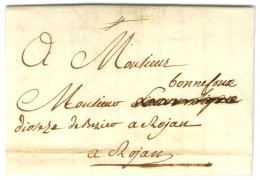 A Monsieur
bonnefoux
Monsieur
dioseze de Bezies a Rojan
a Rojan